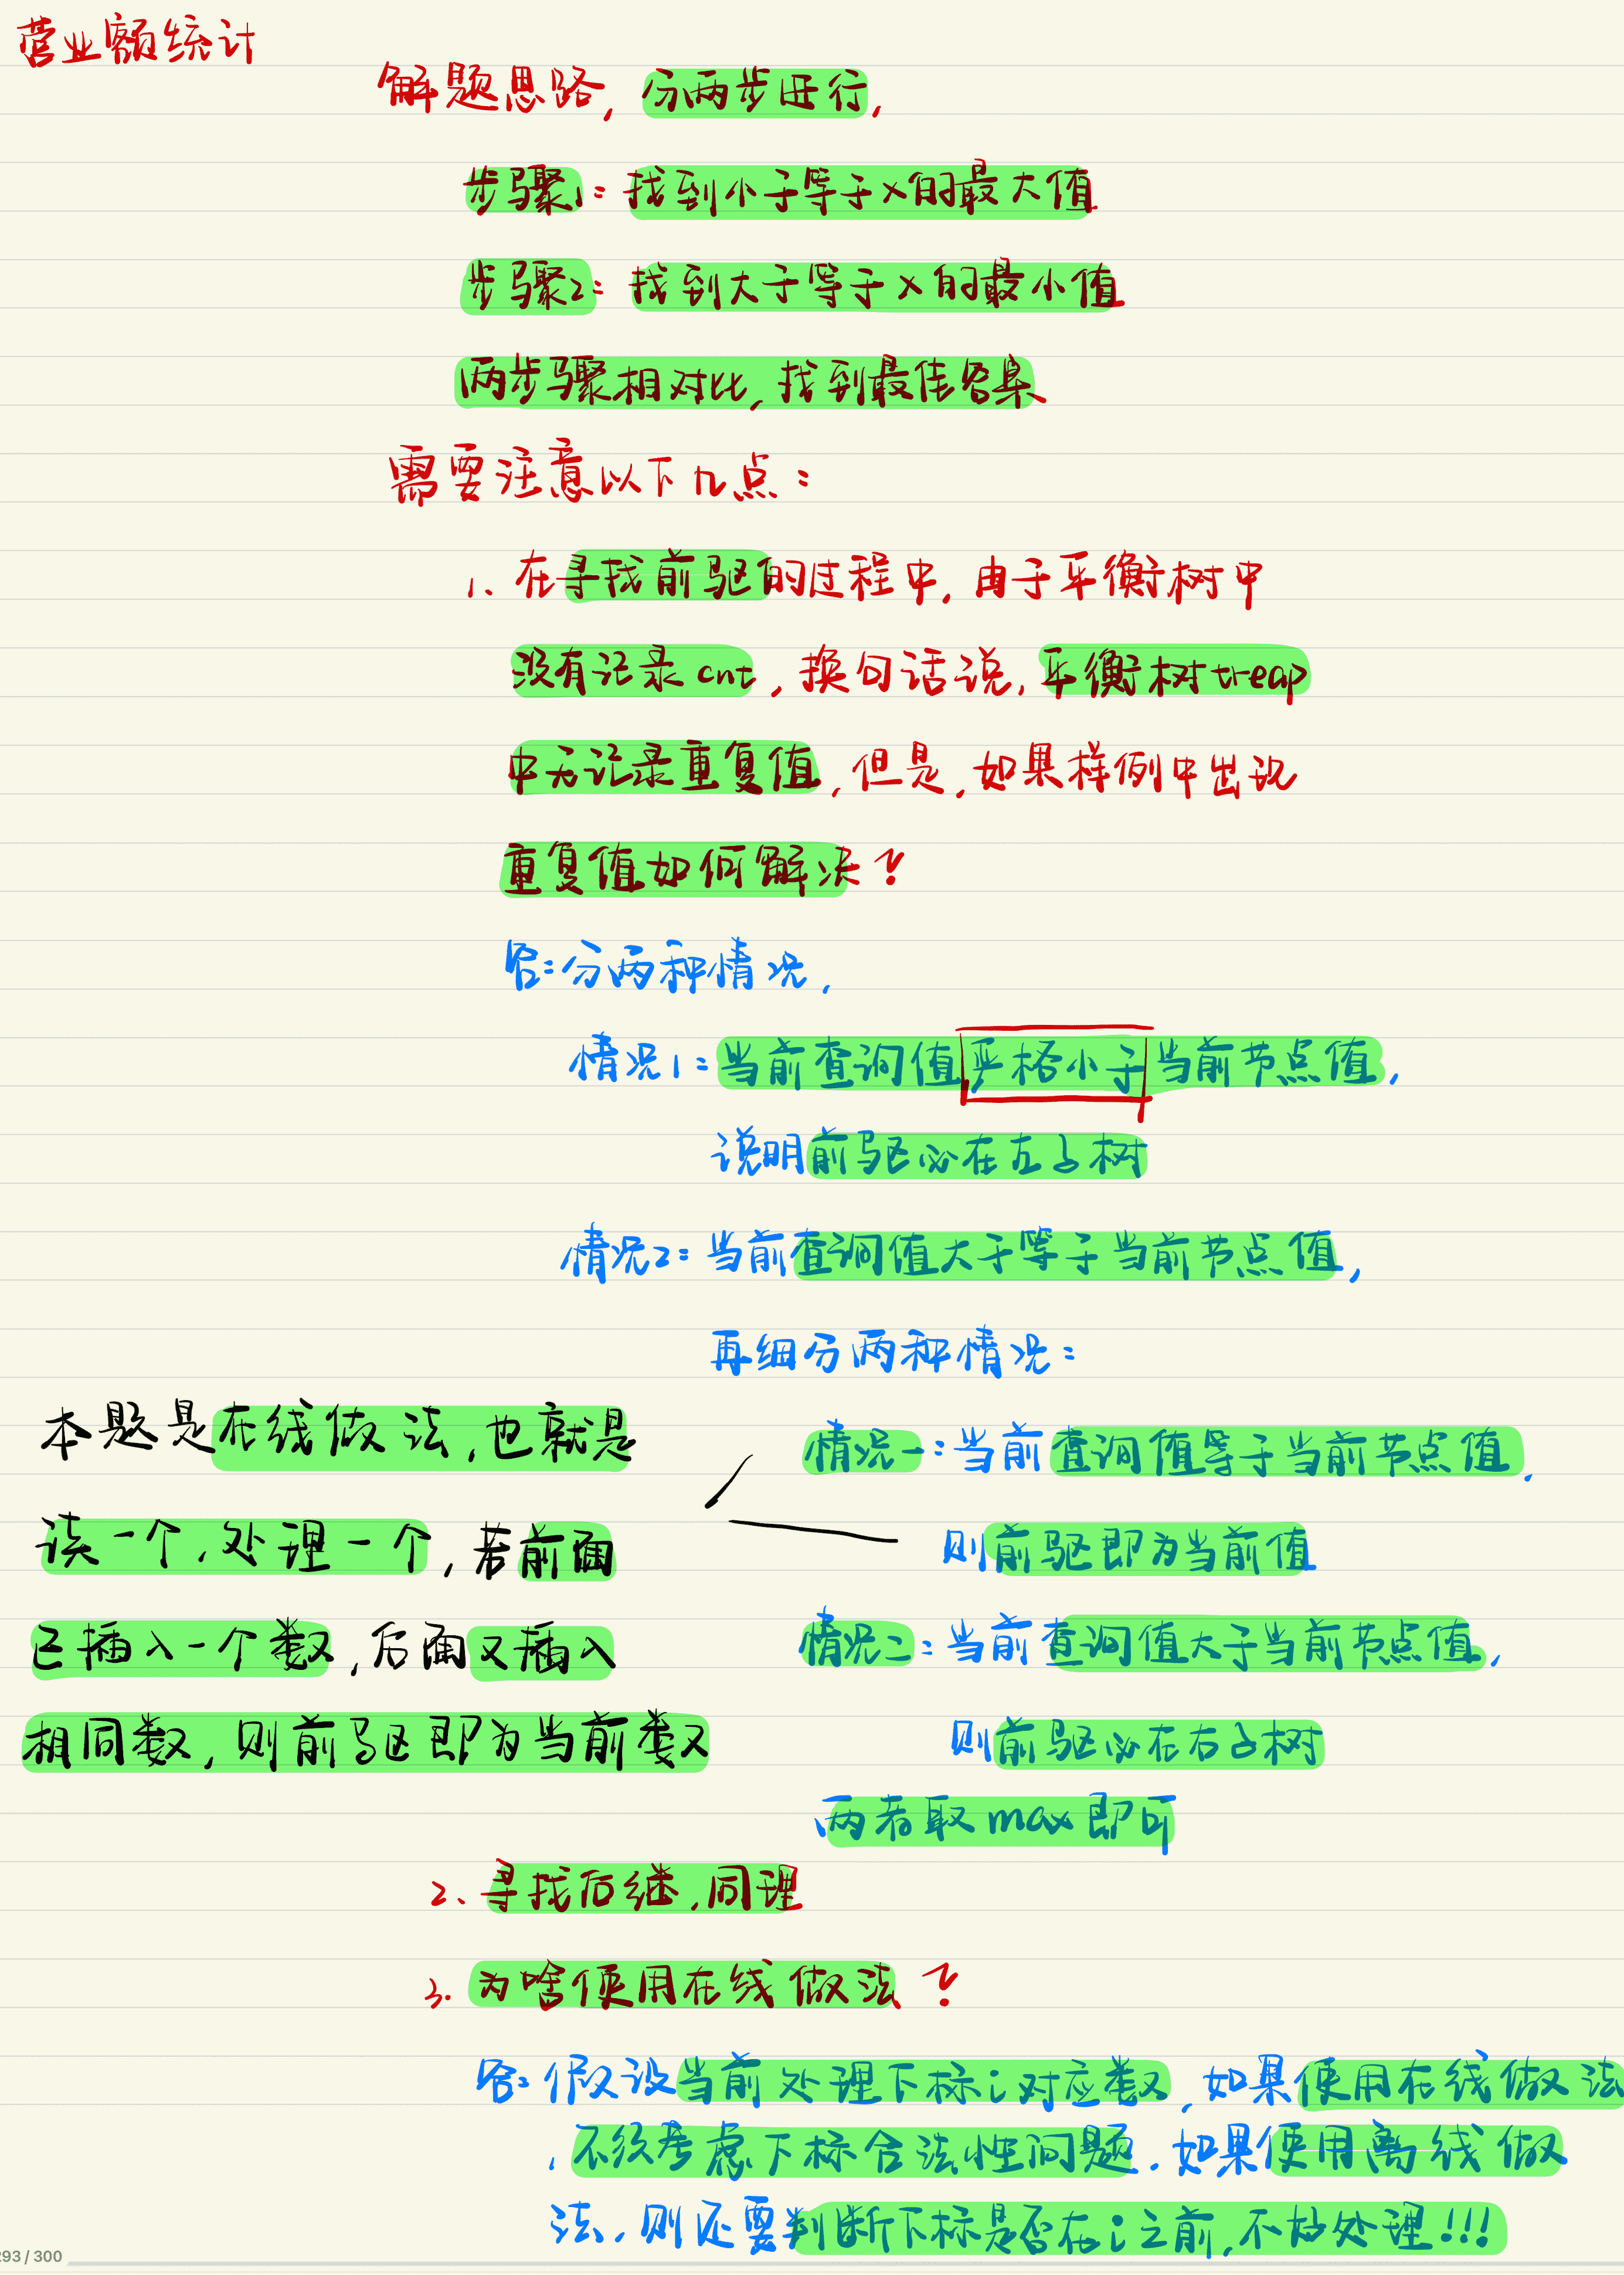 营业额统计
解题思路, 分两步进行,
步骤1: 找到小于等于x的最大值
步骤2: 找到大于等于x的最小值
两步骤相对比, 找到最佳答案
需要注意以下几点:
1. 在寻找前驱的过程中, 由于平衡树中
没有记录cnt, 换句话说, 平衡树treap
中无记录重复值, 但是, 如果样例中出现
重复值如何解决?
答: 分两种情况,
情况1: 当前查询值严格小于当前节点值,
说明前驱必在左子树
情况2: 当前查询值大于等于当前节点值,
再细分两种情况:
情况一: 当前查询值等于当前节点值,
则前驱即为当前值
情况二: 当前查询值大于当前节点值,
则前驱必在右子树
两者取max即可
本题是在线做法, 也就是
读一个, 处理一个, 若前面
已插入一个数, 后面又插入
相同数, 则前驱即为当前数
2. 寻找后继, 同理
3. 为啥使用在线做法?
答: 假设当前处理下标i对应数, 如果使用在线做法
, 不须考虑下标合法性问题. 如果使用离线做
法, 则还要判断下标是否在i之前, 不好处理!!!
293 / 300